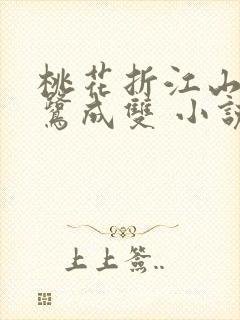 桃花折江山
鷺成雙 小說
上上簽..